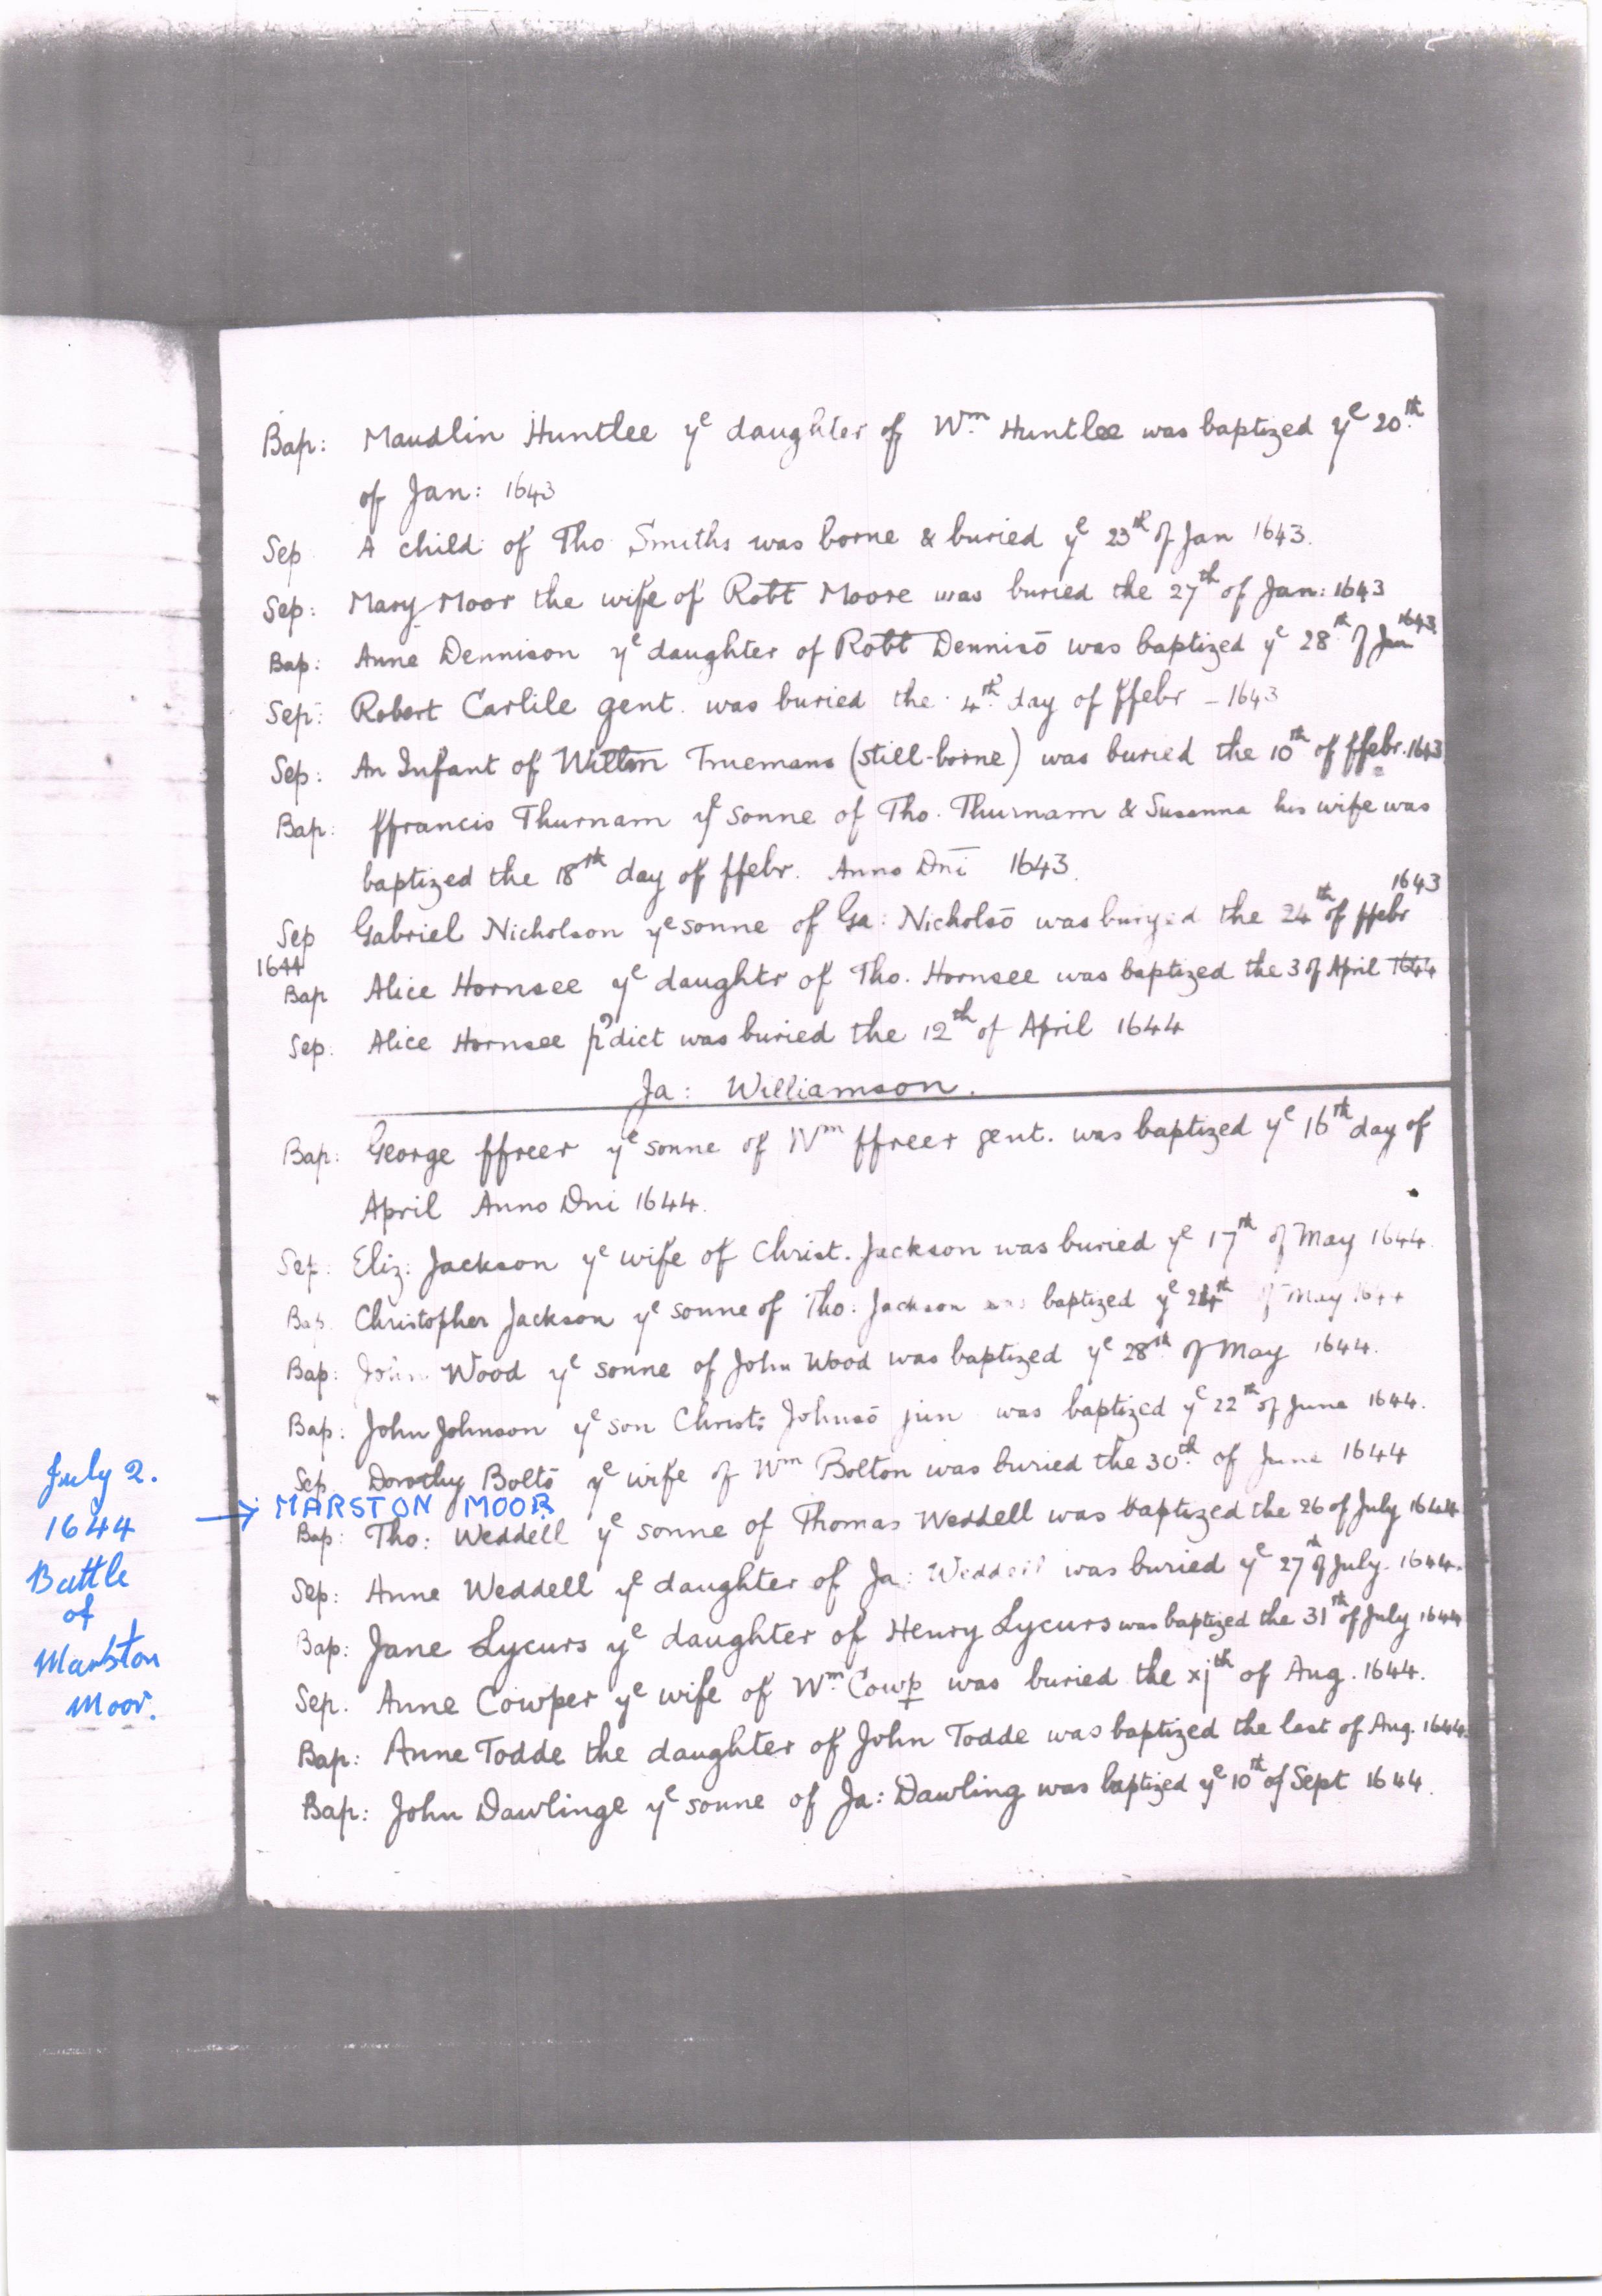 Bap: Maudlin Huntlee ye daughter of Wm Huntlee was baptized ye 20th
of Jan: 1643
Sep A child of Tho Smiths was borne & buried ye 23th of Jan 1643.
Sep: Mary Moor the wife of Robt Moore was buried the 27th of Jan: 1643
Bap: Anne Dennison ye daughter of Robt Dennisō was baptized ye 28th of Jan 1643
Sep: Robert Carlile gent. was buried the 4th day of ffebr - 1643
Sep: An Infant of Willm Truemans (still-borne) was buried the 10th of ffebr. 1643
Bap: ffrancis Thurnam ye sonne of Tho. Thurnam & Susanna his wife was
baptized the 18th day of ffebr. Anno Dni 1643.
Sep Gabriel Nicholson ye sonne of Ga: Nicholsō was buryed the 24th of ffebr 1643
1644
Bap Alice Hornsee ye daughtr of Tho. Hornsee was baptized the 3 of April 1644
Sep: Alice Hornsee p̄dict was buried the 12th of April 1644
Ja: Williamson.
Bap: George ffreer ye sonne of Wm ffreer gent. was baptized ye 16th day of
April Anno Dni 1644.
Sep: Eliz: Jackson ye wife of Christ. Jackson was buried ye 17th of May 1644.
Bap. Christopher Jackson ye sonne of Tho: Jackson was baptized ye 24th of May 1644
Bap: John Wood ye sonne of John Wood was baptized ye 28th of May 1644.
Bap: John Johnson ye son Christ: Johnsō jun was baptized ye 22th of June 1644.
Sep Dorothy Boltō ye wife of Wm Bolton was buried the 30th of June 1644
July 2.
1644
Battle
of
Marston
Moor.
→ MARSTON MOOR
Bap: Tho: Weddell ye sonne of Thomas Weddell was baptized the 26 of July 1644
Sep: Anne Weddell ye daughter of Ja: Weddell was buried ye 27th of July. 1644.
Bap: Jane Lycurs ye daughter of Henry Lycurs was baptized the 31th of July 1644
Sep. Anne Cowper ye wife of Wm Cowp was buried the xjth of Aug. 1644.
Bap: Anne Todde the daughter of John Todde was baptized the last of Aug. 1644.
Bap: John Dawlinge ye sonne of Ja: Dawling was baptized ye 10th of Sept 1644.